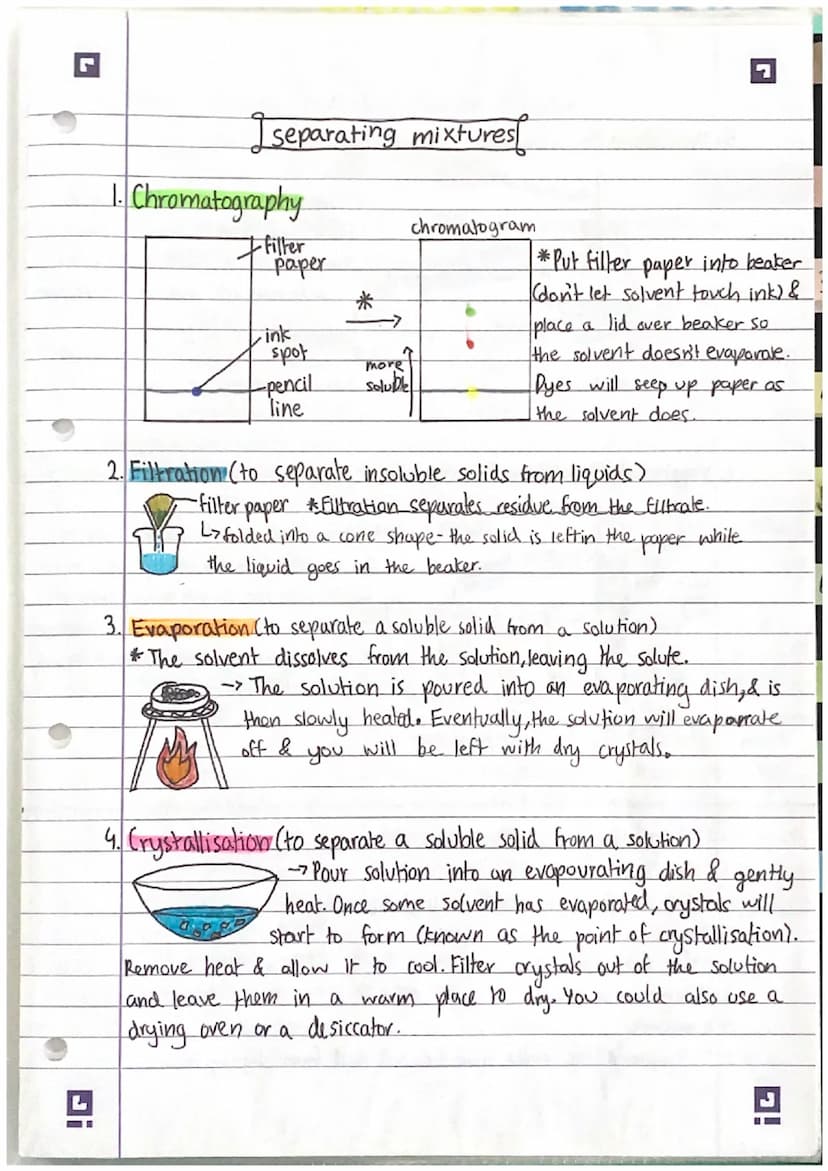 separating mixtures
1. Chromatography
filter
paper
ink
spot
pencil
line
*
more
soluble
chromatogram
*Put filter paper into beaker
(don't let solvent touch ink) &
place a lid over beaker so
the solvent doesn't evaporate.
Dyes will seep up paper as
the solvent does.
2. Filtration (to separate insoluble solids from liquids)
filter paper *Filtration separates residue from the filtrate.
↳folded into a cone shape - the solid is left in the paper while
the liquid goes in the beaker.
3. Evaporation (to separate a soluble solid from a solution)
* The solvent dissolves from the solution, leaving the solute.
→ The solution is poured into an evaporating dish, & is
then slowly heated. Eventually, the solution will evaporate
off & you will be left with dry crystals.
4. Crystallisation (to separate a soluble solid from a solution)
→ Pour solution into an evapourating dish & gently
heat. Once some solvent has evaporated, crystals will
start to form (known as the point of crystallisation).
Remove heat & allow it to cool. Filter crystals out of the solution
and leave them in a warm place to dry. You could also use a
drying oven or a desiccator.